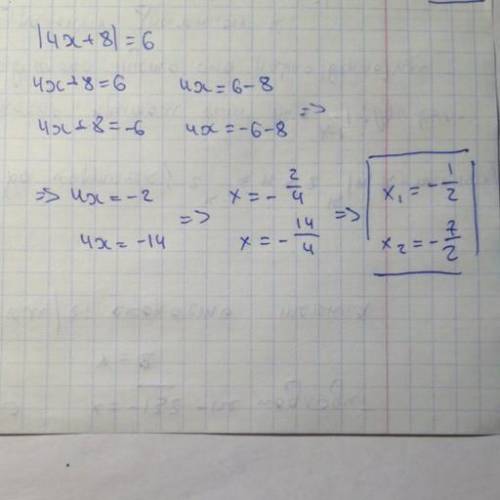 |4x+8|=6
4x+8=6 4x=6-8
4x+8=-6 4x=-6-8 =>
=> 4x=-2 => x=-2/4 => x₁=-1/2
4x=-14 x=-14/4 x₂=-7/2